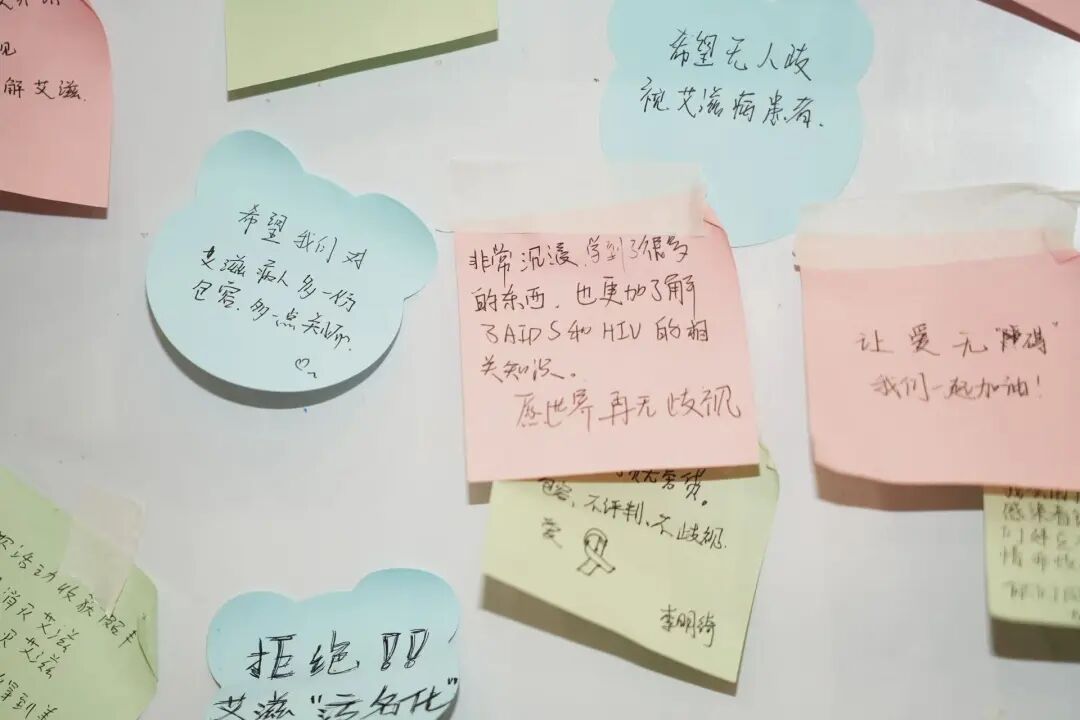 解艾滋.
希望无人歧
视艾滋病患者.
希望我们对
艾滋病人多一份
包容.多一点关怀.
非常沉浸,学到了很多
的东西,也更加了解
了AIDS和HIV的相
关知识。
愿世界再无歧视
让爱无"障碍"
我们一起加油!
包容、不评判、不歧视.
爱
李明绮
感染者
消灭艾滋
灭艾滋
拒绝!!
艾滋"污名化"